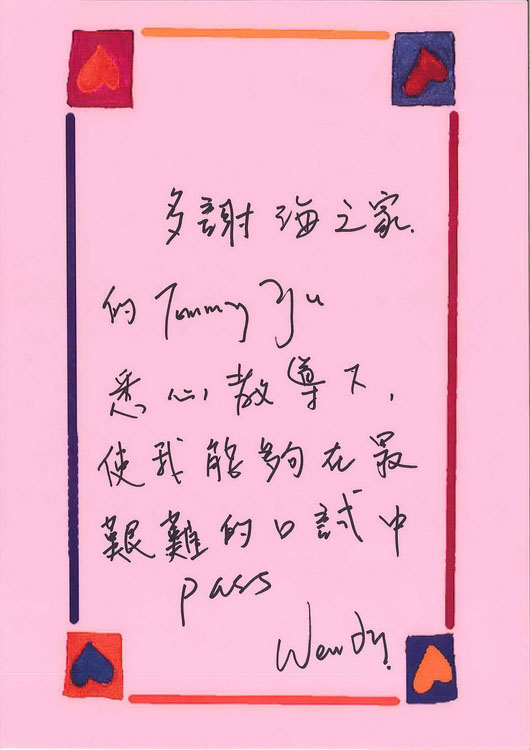 多謝海之家.
的 Tommy Yu
悉心教導下,
使我能夠在最
艱難的口試中
pass
Wendy.